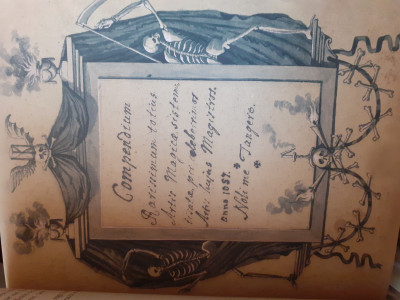 Compendium
Rarissimum totius
Artis Magicæ sistema
tisatæ per celeberrimos
Artis hujus Magistros.
Anno 1057.
Noli me Tangere.